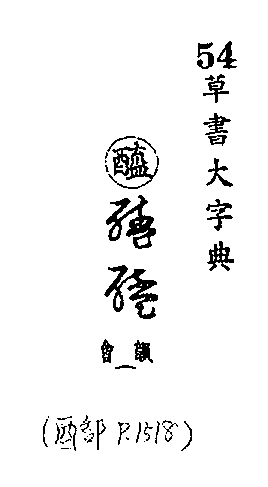 54
草書大字典
醯
韻會
(酉部 P.1518)